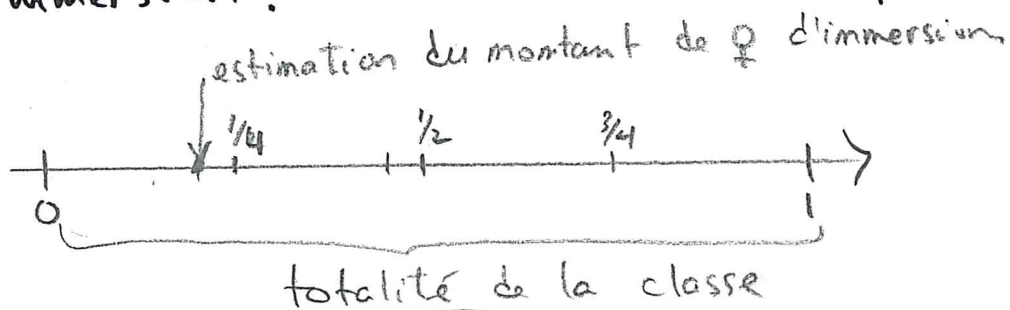 estimation du montant de ♀ d'immersion
1/4 1/2 3/4
0 1
totalité de la classe